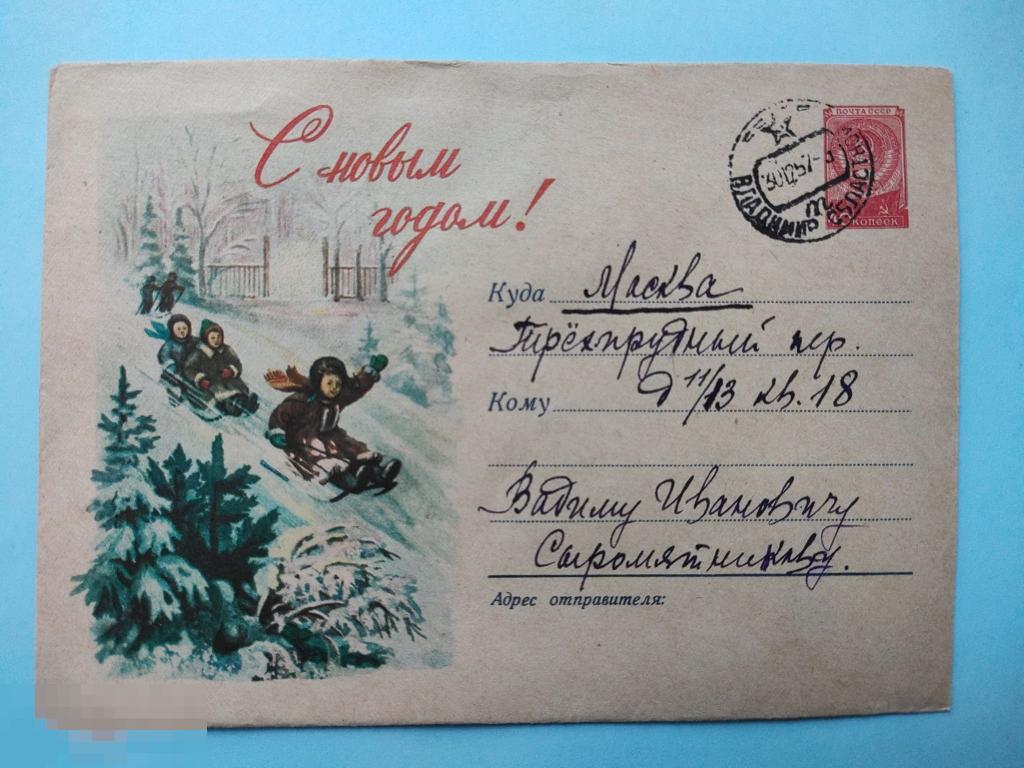 С новым
годом!
ПОЧТА СССР
КОПЕЕК
30.12.57
ВЛАДИМИР ОБЛАСТ
Куда Москва
Трёхпрудный пер.
Кому д 11/13 кв. 18
Вадиму Ивановичу
Сыромятникову.
Адрес отправителя: